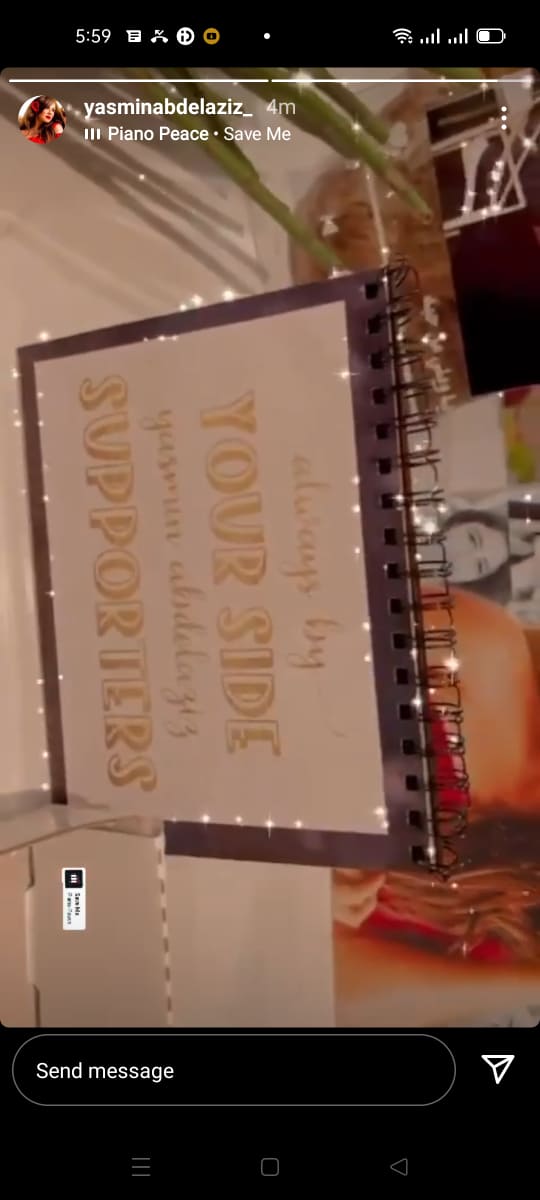 5:59
yasminabdelaziz_ 4m
Piano Peace • Save Me
always by
YOUR SIDE
yasmin abdelaziz
SUPPORTERS
Save Me
Piano Peace
Send message